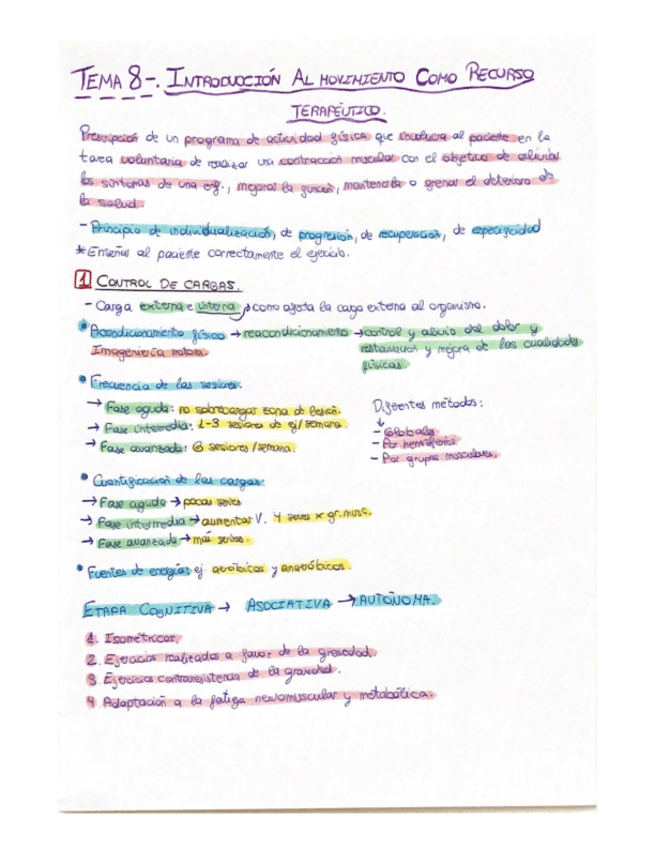 TEMA 8-. INTRODUCCIÓN AL MOVIMIENTO COMO RECURSO
TERAPÉUTICO.
Prescripción de un programa de actividad física que involucra al paciente en la
tarea voluntaria de realizar una contracción muscular con el objetivo de aliviar
los síntomas de una enf., mejorar la función, mantenerla o frenar el deterioro de
la salud.
- Principio de individualización, de progresión, de recuperación, de especificidad
* Enseñar al paciente correctamente el ejercicio.
1 CONTROL DE CARGAS.
- Carga externa e interna, como afecta la carga externa al organismo.
• Acondicionamiento físico → reacondicionamiento → control y alivio del dolor y
Imagenería motora. restauración y mejora de las cualidades
físicas.
• Frecuencia de las sesiones:
→ Fase aguda: no sobrecargar zona de lesión. Diferentes métodos:
→ Fase intermedia: 1-3 sesiones de ej/semana. ↓ - Globales
→ Fase avanzada: 6 sesiones/semana. - Por hemisferios.
- Por grupos musculares.
• Cuantificación de las cargas:
→ Fase aguda → pocas series
→ Fase intermedia → aumentar V. 4 series x gr. musc.
→ Fase avanzada → más series.
• Fuentes de energías ej. aeróbicos y anaeróbicos.
ETAPA COGNITIVA → ASOCIATIVA → AUTÓNOMA.
1. Isométricos.
2. Ejercicios realizados a favor de la gravedad.
3. Ejercicios contraresistencia de la gravedad.
4 Adaptación a la fatiga neuromuscular y metabólica.